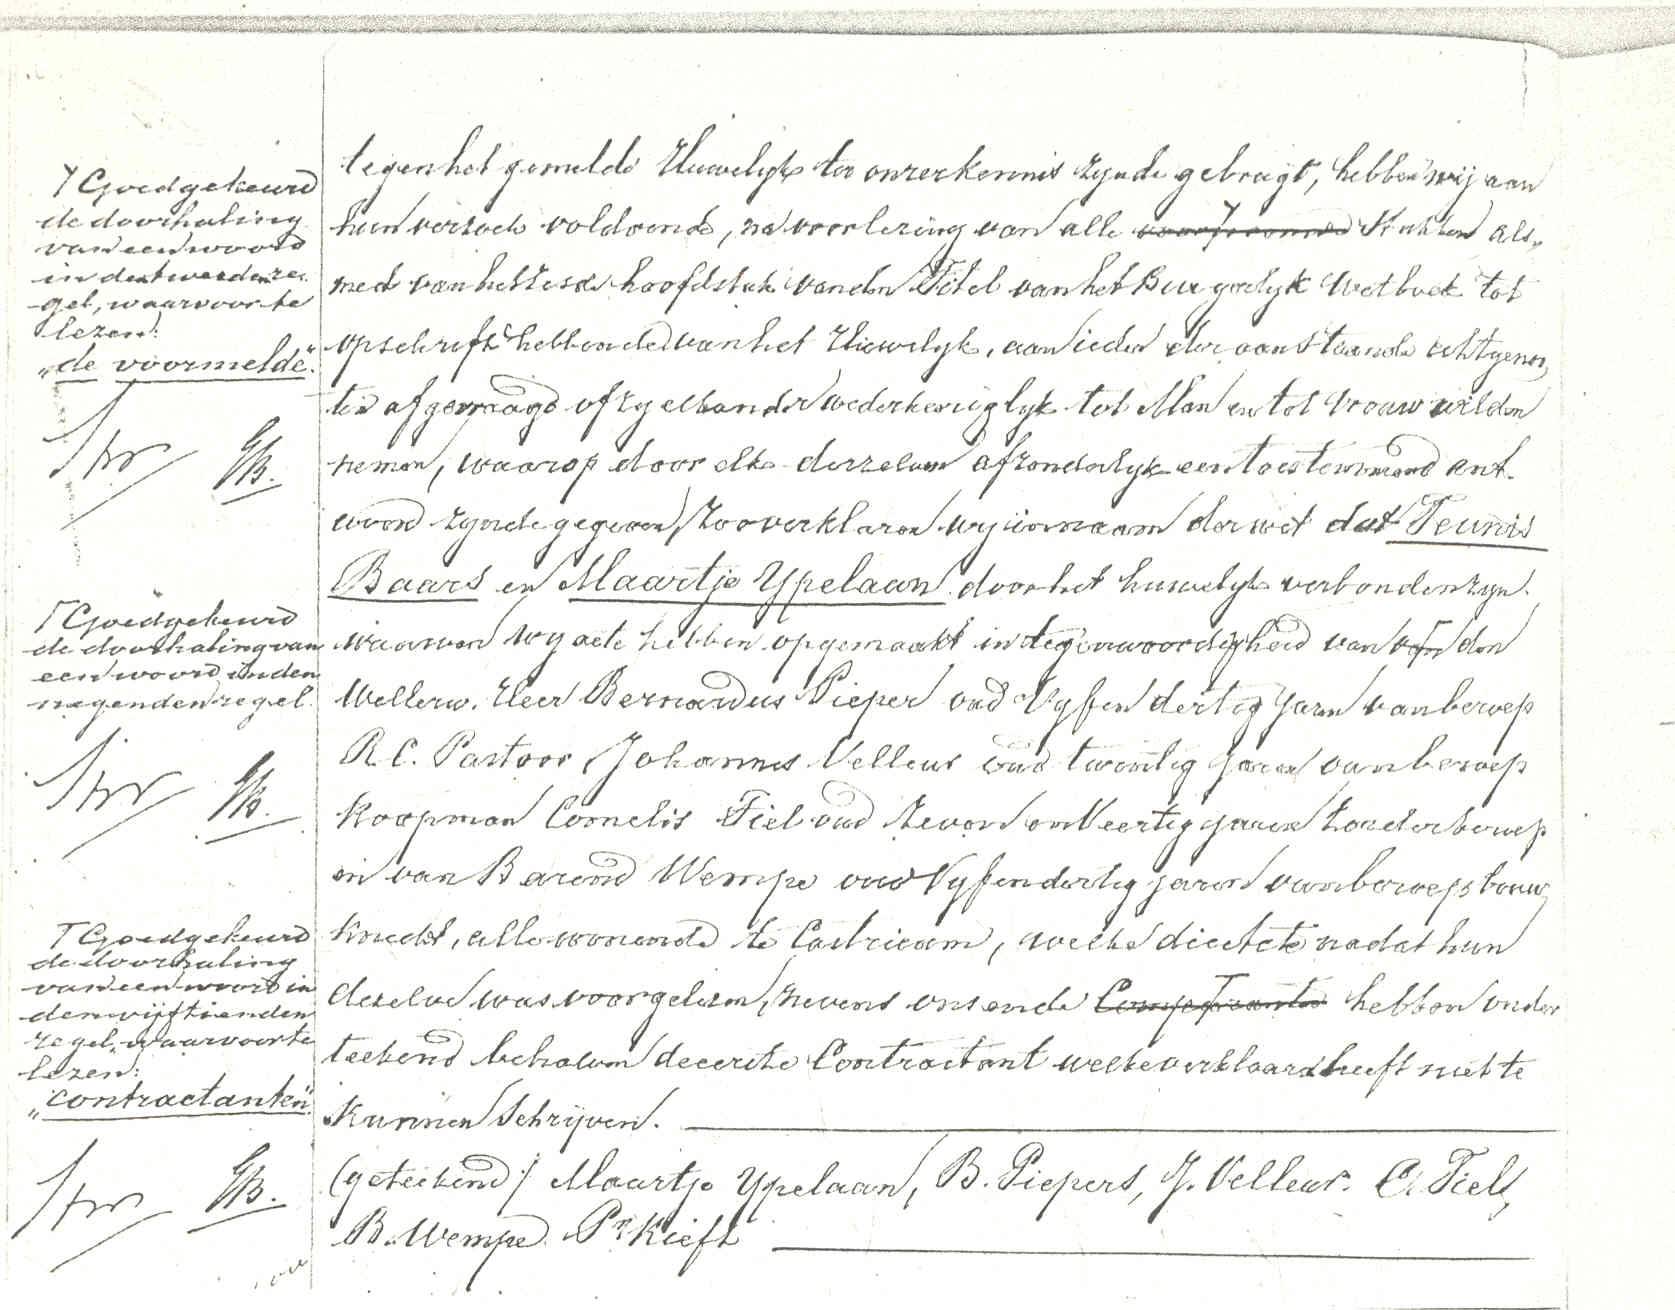 tegen het gemelde Huwelijk ter onzer kennis zynde gebragt, hebben wij aan
hun verzoek voldoende, na voorlezing van alle stukken als,,
mede van het zesde hoofdstuk van den Titel van het Burgerlyk Wetboek tot
opschrift hebbende van het Huwelyk, aan ieder der aanstaande echtgenoo,,
ten afgevraagd of zy elkander wederkeriglyk tot Man en tot Vrouw wilden
nemen, waarop door elk derzelven afzonderlyk een toestemmend ant-
woord zynde gegeven, zoo verklaren wy in naam der wet dat Teunis
Baars en Maartje Ypelaan door het huwelyk verbonden zyn.
waarvan wy acte hebben opgemaakt in tegenwoordigheid van van den
Wellerw. Heer Bernardus Pieper oud Vyf en dertig jaren van beroep
R.C. Pastoor, Johannes Velleur oud twintig jaren van beroep
Koopman Cornelis Tiel oud zeven en Veertig jaren zonder beroep
en van Barend Wempe oud Vyf en dertig jaren van beroep bouw,,
knecht, alle wonende te Castricum, welke die acte nadat hun
dezelve was voorgelezen, nevens ons en de Comparanten hebben onder
teekend behalven de eerste Contractant welke verklaard heeft niet te
kunnen Schrijven.
(geteekend) Maartje Ypelaan, B. Piepers, J. Velleur. C. Tiel,
B. Wempe. Pr Kieft
Goedgekeurd
de doorhaling
van een woord
in den tweeden re-
gel, waarvoor te
lezen:
„de voormelde".
GB.
Goedgekeurd
de doorhaling van
een woord in den
negenden regel.
GB.
Goedgekeurd
de doorhaling
van een woord in
den vijftienden
regel, waarvoor te
lezen:
„contractanten".
GB.